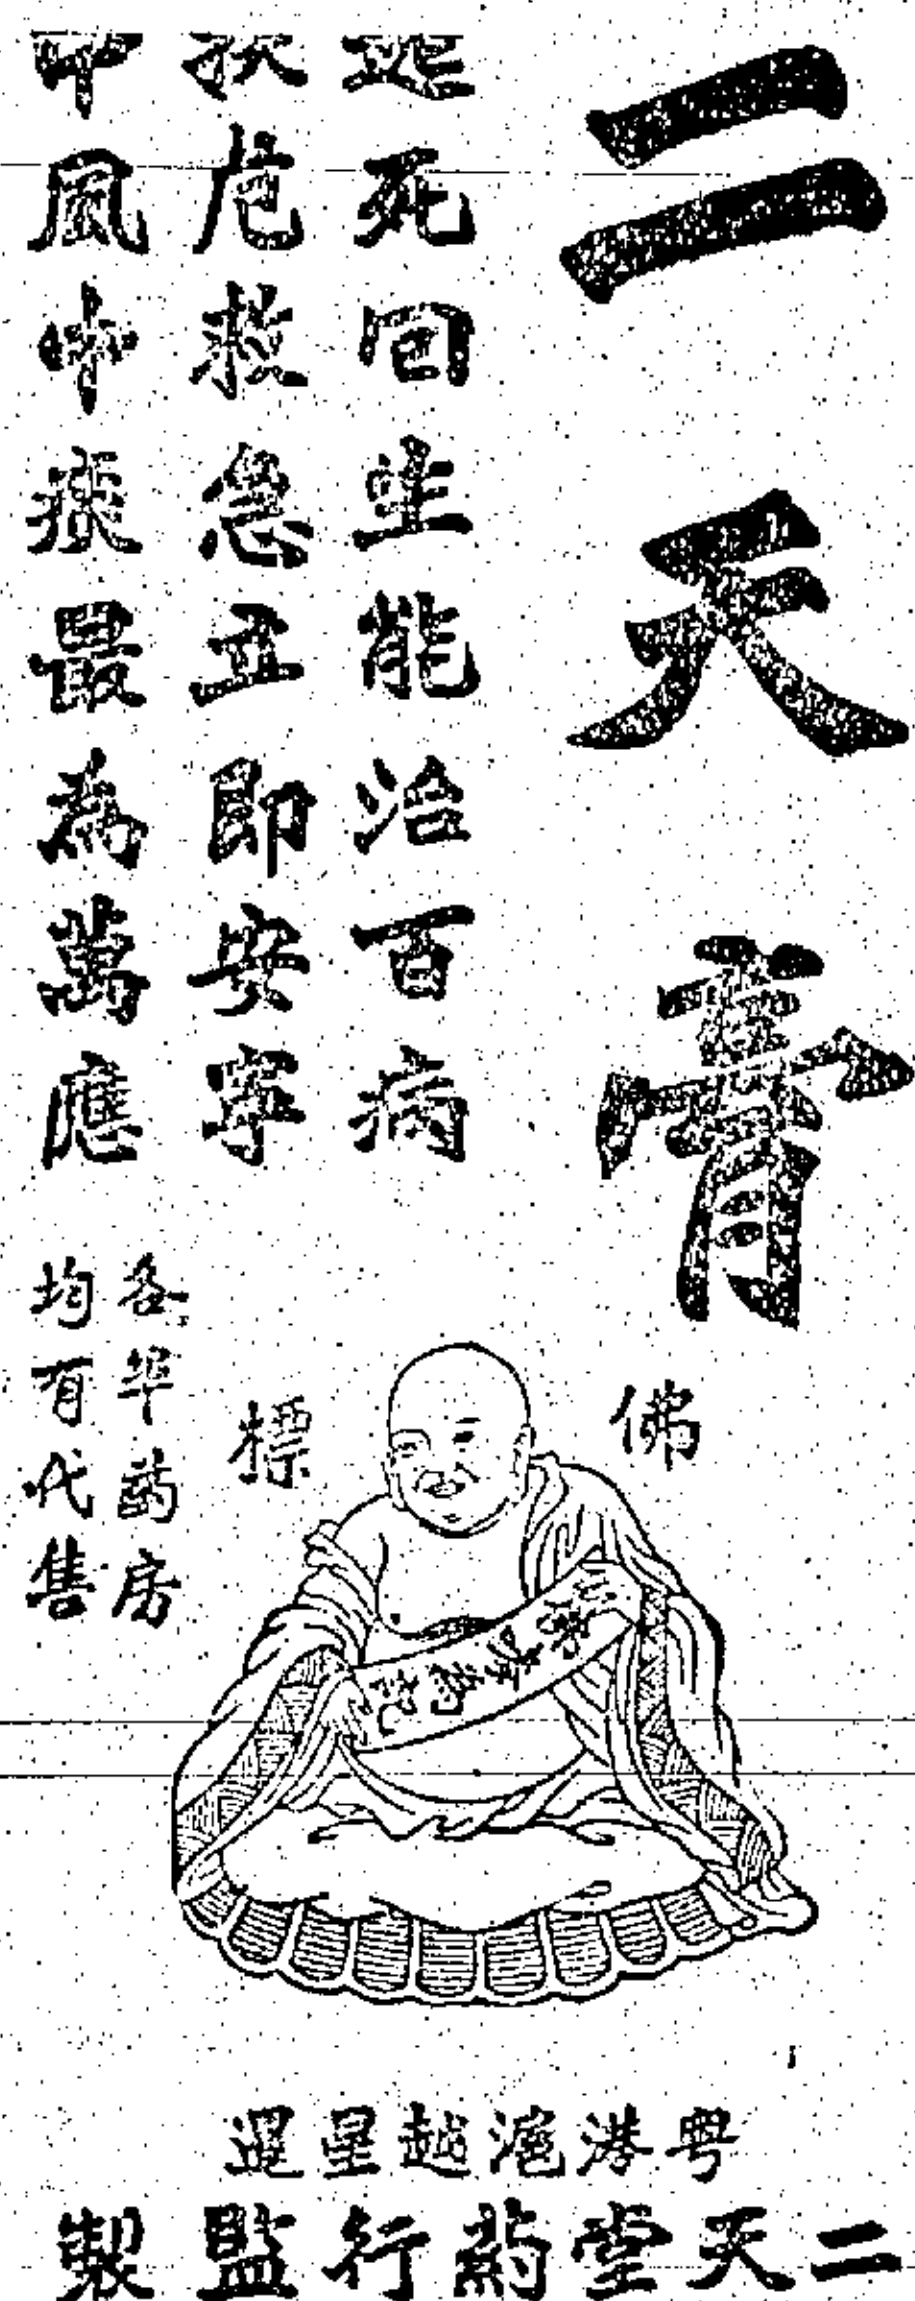 二天膏
起死回生能治百病
扶危救急立即安寧
中風中痰最為萬應
佛標
各埠葯房
均有代售
粵港滬越星暹
二天堂葯行監製